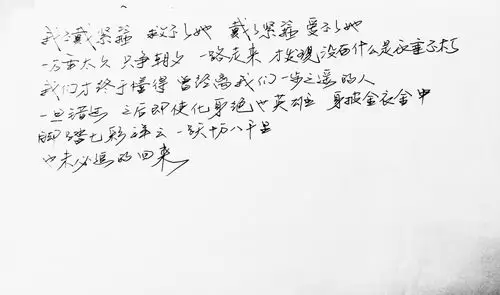 我了戴紧箍 救了她 戴了紧箍 爱了她
一万年太久 只争朝夕 一路走来 才发现 没有什么是永垂不朽
我们才终于懂得 曾经离我们一步之遥的人
一旦错过 之后即使化身绝世英雄 身披金衣金甲
脚踏七彩祥云 一跃十万八千里
也未必追的回来